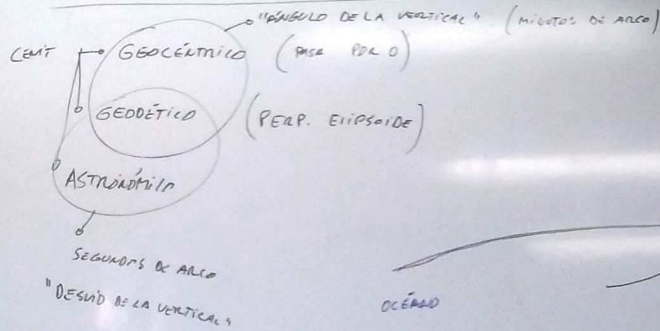 "ÁNGULO DE LA VERTICAL" (MINUTOS DE ARCO)
CENIT GEOCÉNTRICO (PASA POR O)
GEODÉTICO (PERP. ElIPSOIDE)
ASTRONÓMICO
SEGUNDOS DE ARCO
"DESVÍO DE LA VERTICAL"
OCÉANO